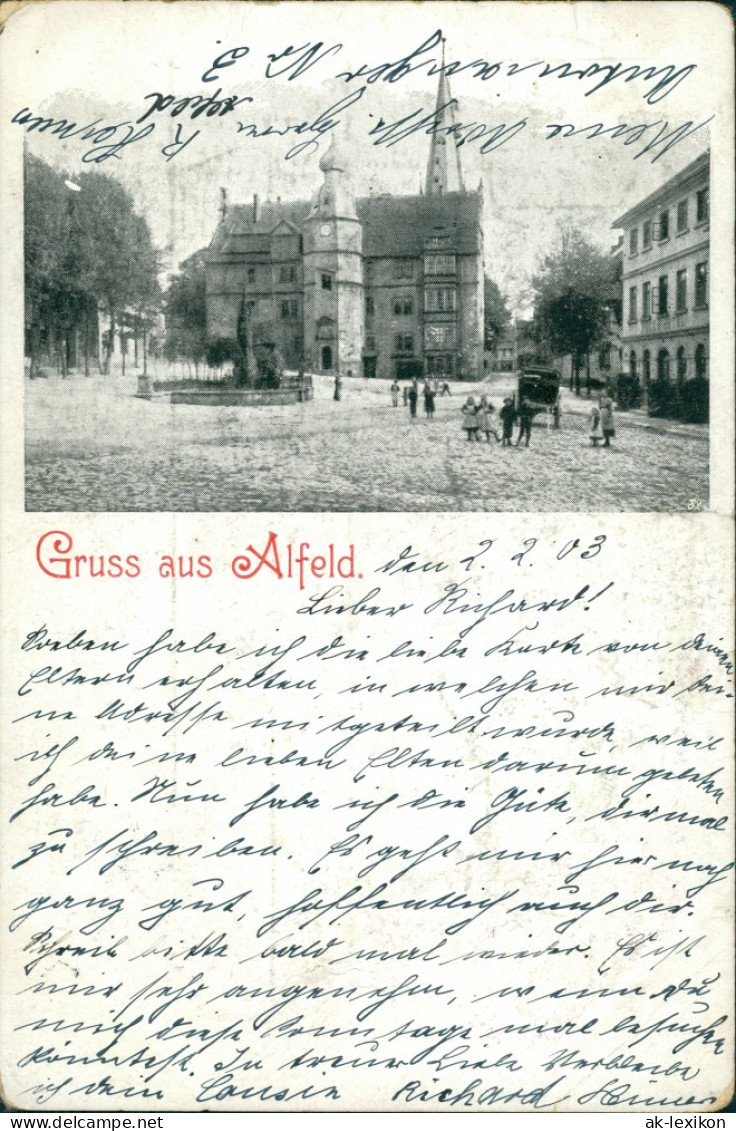 Meine Adresse Herrn R.
Antonianger Nr 3.
Gruss aus Alfeld. den 2. 2. 03
Lieber Richard!
Soeben habe ich die liebe Karte von deinen
Eltern erhalten, in welchen mir dei-
ne Adresse mitgeteilt wurde, weil
ich deine lieben Eltern darum gebeten
habe. Nun habe ich die Güte, dir mal
zu schreiben. Es geht mir hier noch
ganz gut, hoffentlich auch dir.
Schreib bitte bald mal wieder. Es ist
mir sehr angenehm, wenn Du
mich diese Sonntage mal besuchen
könntest. In treuer Liebe Verbleibe
ich dein Cousin Richard
© ak-lexikon
ak-lexikon.com